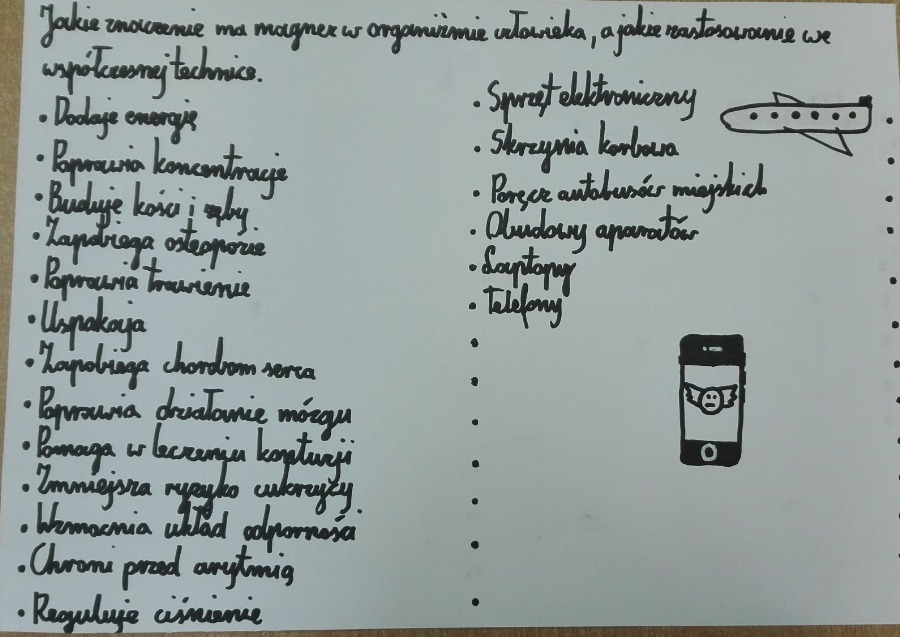 Jakie znaczenie ma magnez w organiźmie człowieka, a jakie zastosowanie we
współczesnej technice.
• Dodaje energię
• Poprawia koncentracje
• Buduje kości i zęby
• Zapobiega osteoporozie
• Poprawia trawienie
• Uspakaja
• Zapobiega chorobom serca
• Poprawia działanie mózgu
• Pomaga w leczeniu kontuzji
• Zmniejsza ryzyko cukrzycy
• Wzmacnia układ odporności
• Chroni przed arytmią
• Reguluje ciśnienie
• Sprzęt elektroniczny
• Skrzynia korbowa
• Poręcz autobusów miejskich
• Obudowy aparatów
• Laptopy
• Telefony